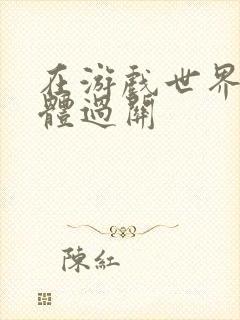 在游戲世界
體過關
陳紅